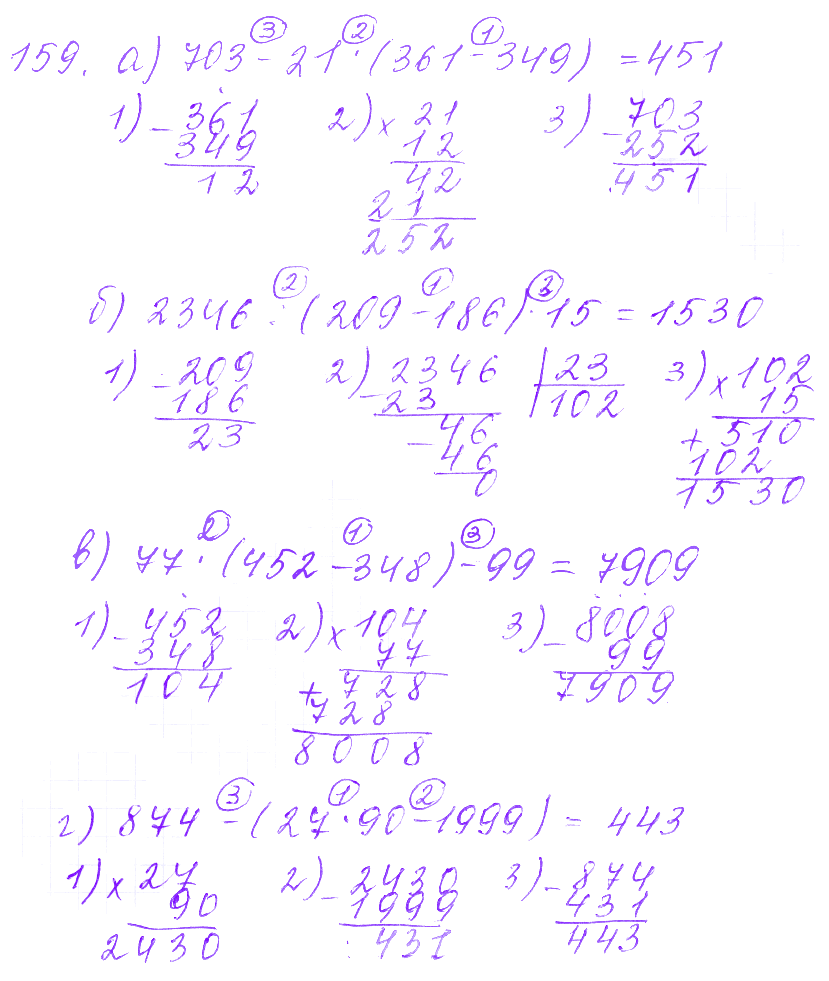 159. а) 703 - 21 · (361 - 349) = 451
③ ② ①
1) - 361 2) × 21 3) - 703
349 12 252
12 42 451
21
252
② ① ③
б) 2346 : (209 - 186) · 15 = 1530
1) - 209 2) - 2346 | 23 3) × 102
186 23 102 15
23 - 46 + 510
46 102
0 1530
② ① ③
в) 77 · (452 - 348) - 99 = 7909
1) - 452 2) × 104 3) - 8008
348 77 99
104 + 728 7909
728
8008
③ ① ②
г) 874 - (27 · 90 - 1999) = 443
1) × 27 2) - 2430 3) - 874
90 1999 431
2430 431 443